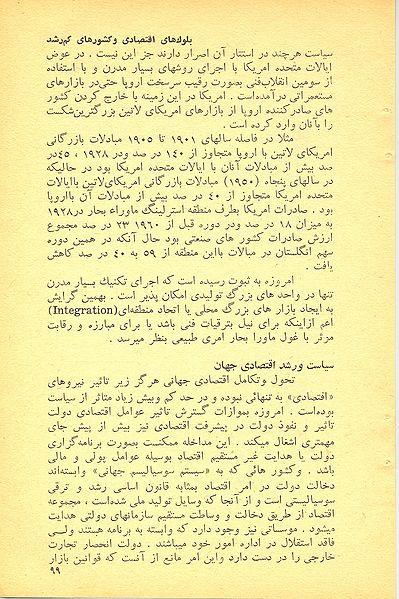 بلوکهای اقتصادی وکشورهای کم‌رشد
سیاست هرچند در استتار آن اصرار دارند جز این نیست . در عوض
ایالات متحده امریکا با اجرای روشهای بسیار مدرن و با استفاده
از سومین انقلاب‌فنی بصورت رقیب سرسخت اروپا حتی‌در بازارهای
مستعمراتی درآمده‌است . امریکا در این زمینه با خارج کردن کشور
های صادرکننده اروپا از بازارهای امریکای لاتین بزرگترین‌شکست
را بآنان وارد کرده است .
مثلا در فاصله سالهای ۱۹۰۱ تا ۱۹۰۵ مبادلات بازرگانی
امریکای لاتین با اروپا متجاوز از ۱۴۰ در صد ودر ۱۹۲۸ ، ۴۵در
صد بیش از مبادلات آنان با ایالات متحده امریکا بود در حالیکه
در سالهای پنجاه (۱۹۵۰) مبادلات بازرگانی امریکای‌لاتین باایالات
متحده امریکا متجاوز از ۴۰ در صد بیش از مبادلات آن بااروپا
بود . صادرات امریکا بطرف منطقه استرلینگ ماوراء بحار در۱۹۲۸
به میزان ۱۸ در صد ودر دوره قبل از ۱۹۶۰ ۲۳ در صد مجموع
ارزش صادرات کشور های صنعتی بود حال آنکه در همین دوره
سهم انگلستان در مبالات بااین منطقه از ۵۹ به ۴۰ در صد کاهش
یافت .
امروزه به ثبوت رسیده است که اجرای تکنیک بسیار مدرن
تنها در واحد های بزرگ تولیدی امکان پذیر است . بهمین گرایش
به ایجاد بازار های بزرگ محلی یا اتحاد منطقه‌ای(Integration)
اعم ازاینکه برای نیل بترقیات فنی باشد یا برای مبارزه و رقابت
مرثر با غول ماورا بحار امری طبیعی بنظر میرسد .
سیاست ورشد اقتصادی جهان
تحول وتکامل اقتصادی جهانی هرگز زیر تاثیر نیروهای
«اقتصادی» به تنهائی نبوده و در حد کم وبیش زیاد متاثر از سیاست
بوده‌است . امروزه بموازات گسترش تاثیر عوامل اقتصادی دولت
تاثیر و نفوذ دولت در پیشرفت اقتصادی نیز بیش از پیش جای
مهمتری اشغال میکند . این مداخله ممکنست بصورت برنامه‌گزاری
دولت یا هدایت غیر مستقیم اقتصاد بوسیله عوامل پولی و مالی
باشد . وکشور هائی که به «سیستم سوسیالیسم جهانی» وابسته‌اند
دخالت دولت در امر اقتصاد بمثابه قانون اساسی رشد و ترقی
سوسیالیستی است و از آنجا که وسایل تولید ملی شده‌است ، مجموعه
اقتصاد از طریق دخالت و وساطت مستقیم سازمانهای دولتی هدایت
میشود . موسساتی نیز وجود دارد که وابسته به برنامه هستند ولی
فاقد استقلال در اداره امور خود میباشند . دولت انحصار تجارت
خارجی را در دست دارد واین امر مانع از آنست که قوانین بازار
۹۹